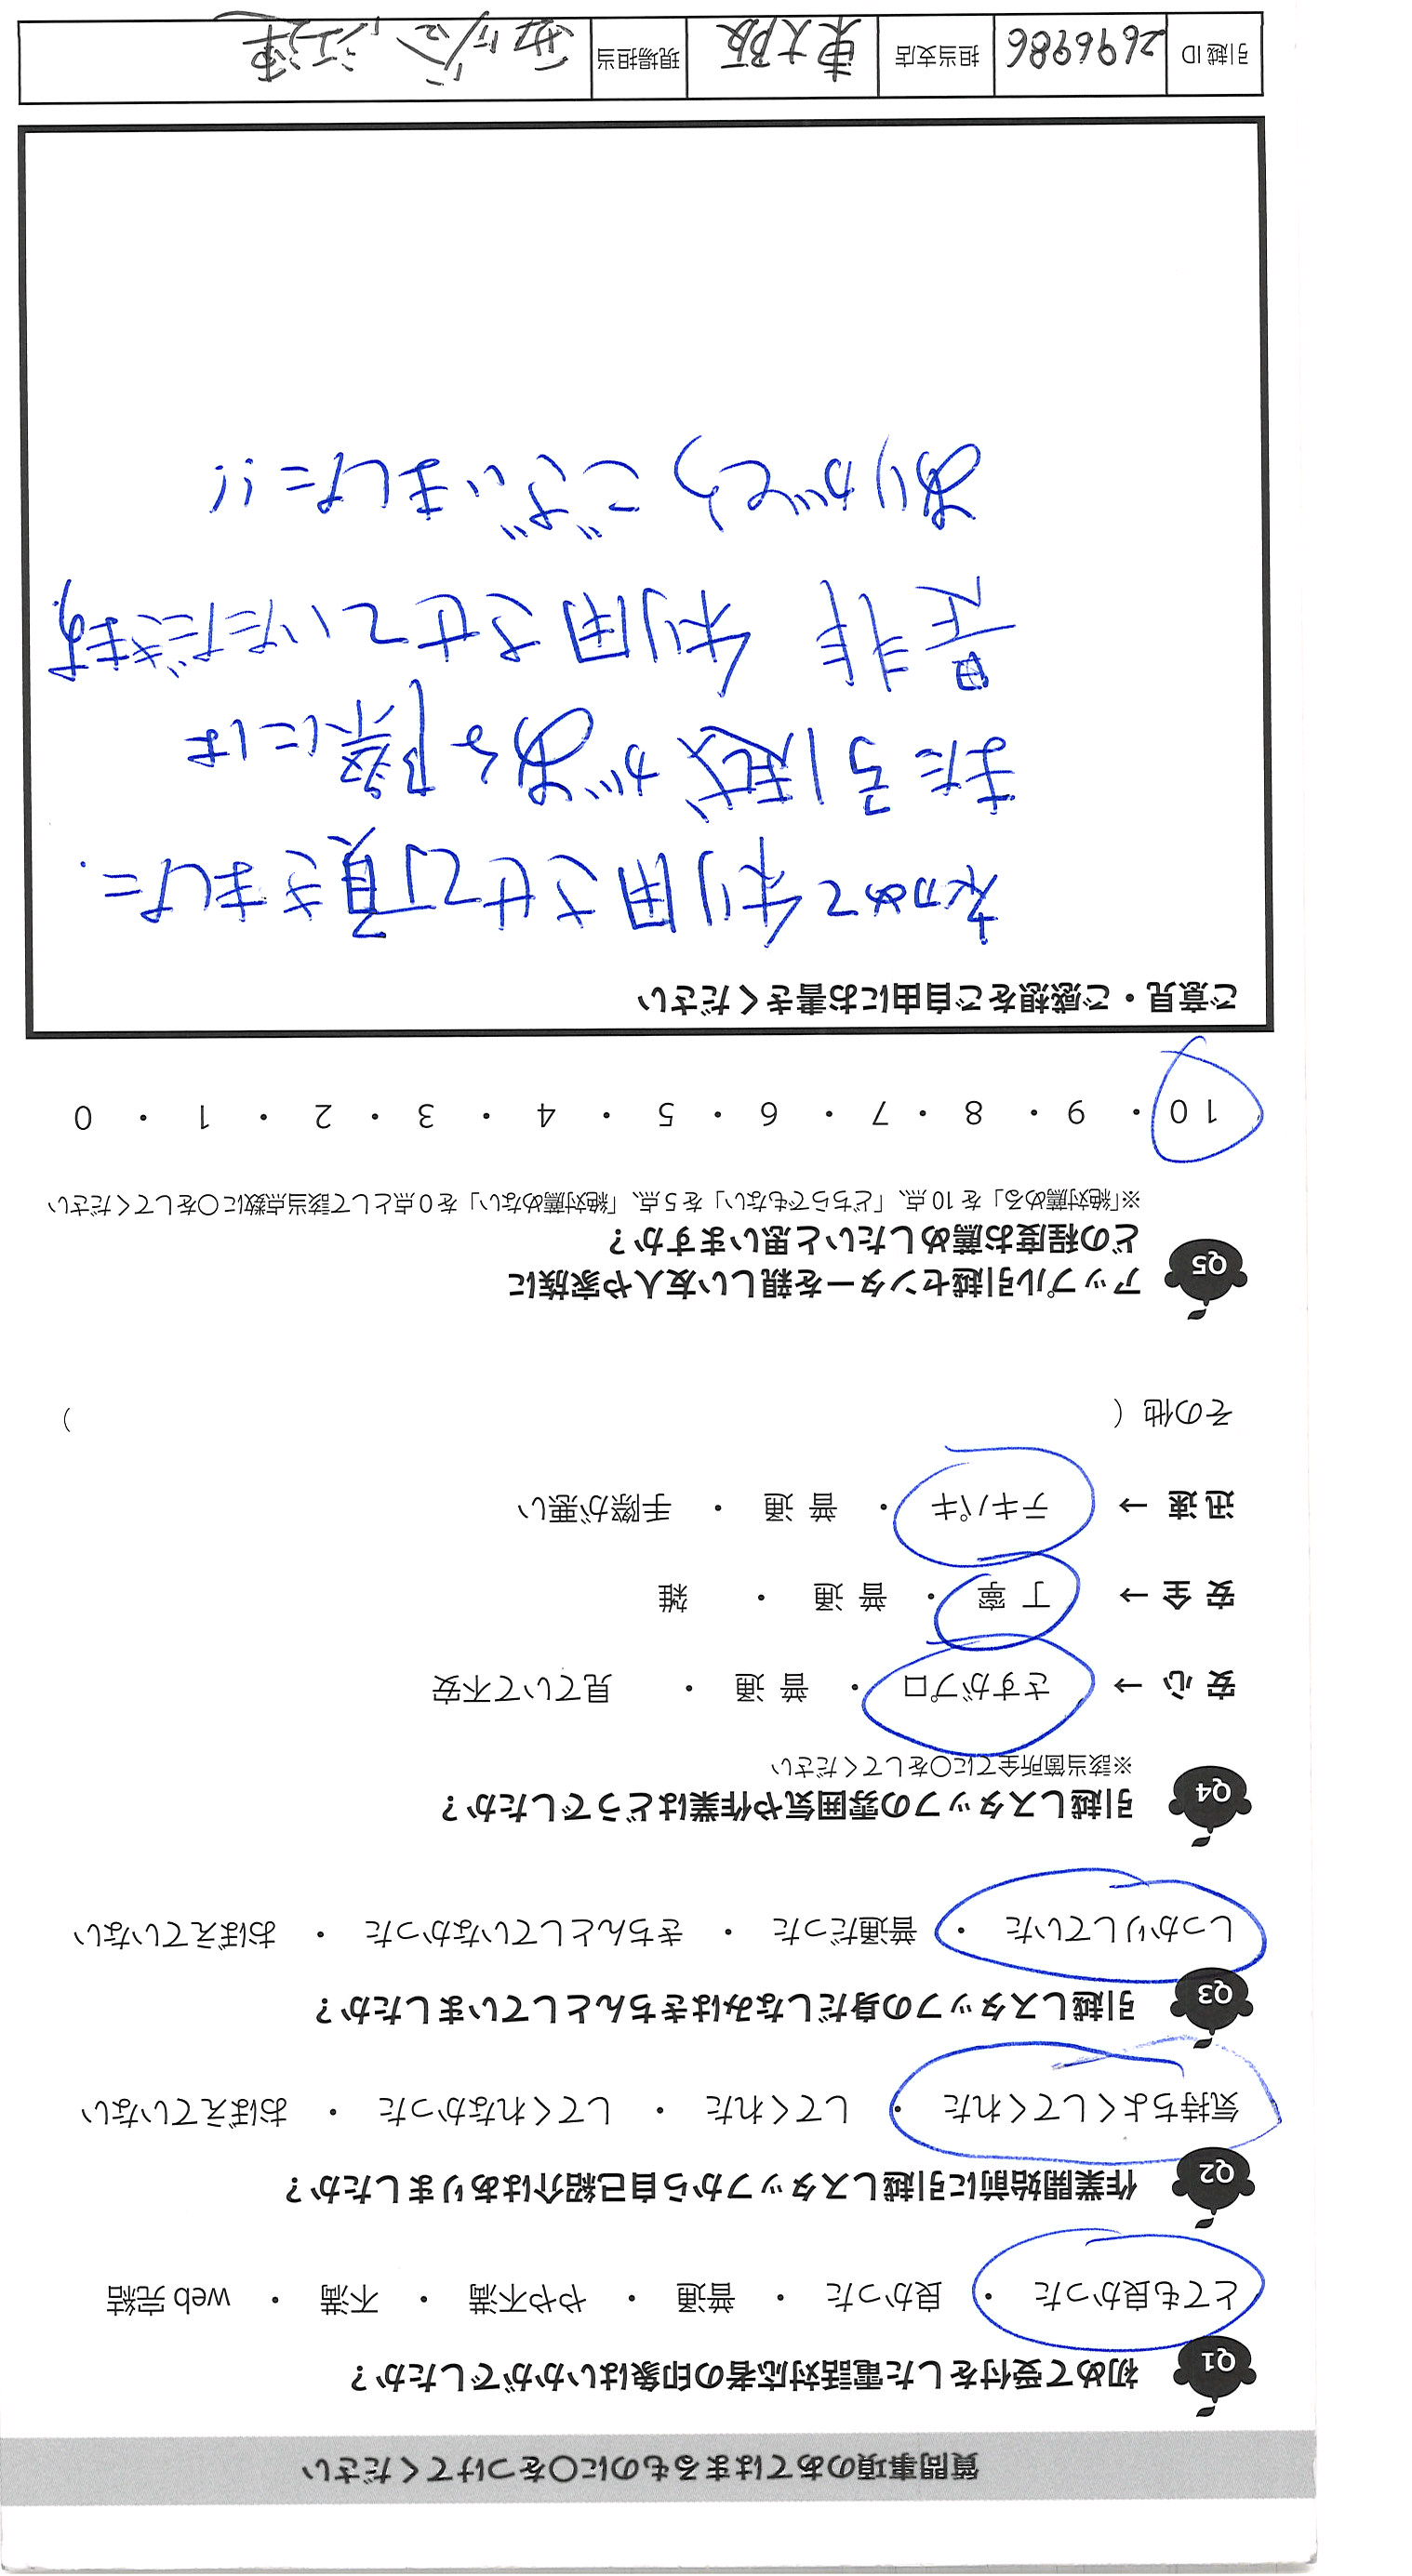 質問事項のあてはまるものに○をつけてください
Q1 初めて受付をした電話対応者の印象はいかがでしたか？
とても良かった ・ 良かった ・ 普通 ・ やや不満 ・ 不満 ・ web 完結
Q2 作業開始前に引越しスタッフから自己紹介はありましたか？
気持ちよくしてくれた ・ してくれた ・ してくれなかった ・ おぼえていない
Q3 引越しスタッフの身だしなみはきちんとしていましたか？
しっかりしていた ・ 普通だった ・ きちんとしていなかった ・ おぼえていない
Q4 引越しスタッフの雰囲気や作業はどうでしたか？
※該当箇所全てに○をしてください
安 心 → さすがプロ ・ 普 通 ・ 見ていて不安
安 全 → 丁 寧 ・ 普 通 ・ 雑
迅 速 → テキパキ ・ 普 通 ・ 手際が悪い
その他（ ）
Q5 アップル引越センターを親しい友人や家族に
どの程度お薦めしたいと思いますか？
※「絶対薦める」を 10 点、「どちらでもない」を 5 点、「絶対薦めない」を 0 点として該当点数に○をしてください
10 ・ 9 ・ 8 ・ 7 ・ 6 ・ 5 ・ 4 ・ 3 ・ 2 ・ 1 ・ 0
ご意見・ご感想をご自由にお書きください
初めて利用させて頂きました.
また引越がある際には
是非 利用させていただきます
ありがとうございました!!
引越 ID 2696986 担当支店 東大阪 現場担当